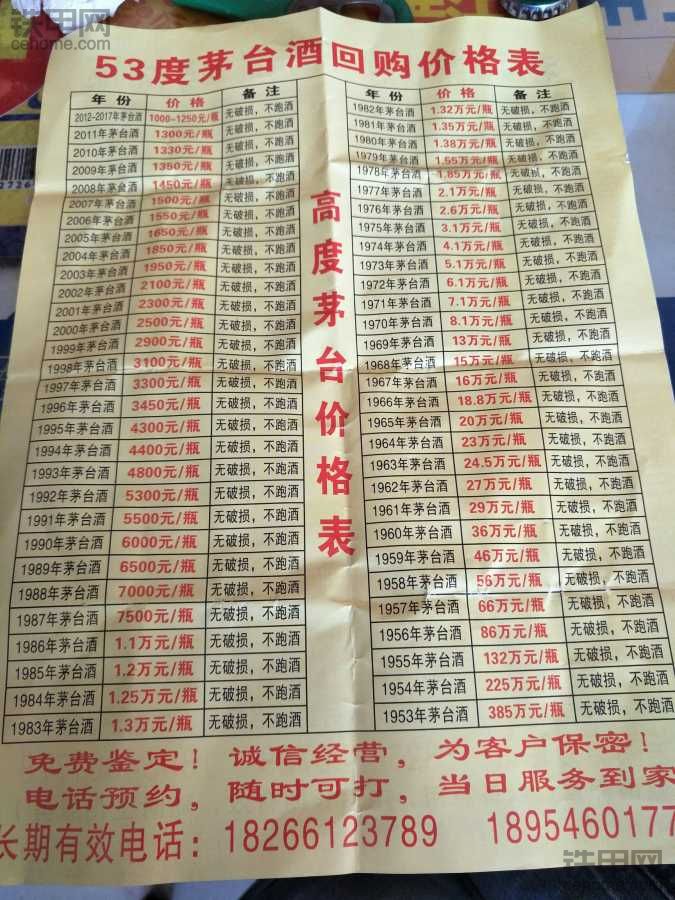 铁甲网
cehome.com
53度茅台酒回购价格表
年份 价格 备注
2012-2017年茅台酒 1000-1250元/瓶 无破损，不跑酒
2011年茅台酒 1300元/瓶 无破损，不跑酒
2010年茅台酒 1330元/瓶 无破损，不跑酒
2009年茅台酒 1350元/瓶 无破损，不跑酒
2008年茅台酒 1450元/瓶 无破损，不跑酒
2007年茅台酒 1500元/瓶 无破损，不跑酒
2006年茅台酒 1550元/瓶 无破损，不跑酒
2005年茅台酒 1650元/瓶 无破损，不跑酒
2004年茅台酒 1850元/瓶 无破损，不跑酒
2003年茅台酒 1950元/瓶 无破损，不跑酒
2002年茅台酒 2100元/瓶 无破损，不跑酒
2001年茅台酒 2300元/瓶 无破损，不跑酒
2000年茅台酒 2500元/瓶 无破损，不跑酒
1999年茅台酒 2900元/瓶 无破损，不跑酒
1998年茅台酒 3100元/瓶 无破损，不跑酒
1997年茅台酒 3300元/瓶 无破损，不跑酒
1996年茅台酒 3450元/瓶 无破损，不跑酒
1995年茅台酒 4300元/瓶 无破损，不跑酒
1994年茅台酒 4400元/瓶 无破损，不跑酒
1993年茅台酒 4800元/瓶 无破损，不跑酒
1992年茅台酒 5300元/瓶 无破损，不跑酒
1991年茅台酒 5500元/瓶 无破损，不跑酒
1990年茅台酒 6000元/瓶 无破损，不跑酒
1989年茅台酒 6500元/瓶 无破损，不跑酒
1988年茅台酒 7000元/瓶 无破损，不跑酒
1987年茅台酒 7500元/瓶 无破损，不跑酒
1986年茅台酒 1.1万元/瓶 无破损，不跑酒
1985年茅台酒 1.2万元/瓶 无破损，不跑酒
1984年茅台酒 1.25万元/瓶 无破损，不跑酒
1983年茅台酒 1.3万元/瓶 无破损，不跑酒
高度茅台价格表
年份 价格 备注
1982年茅台酒 1.32万元/瓶 无破损，不跑酒
1981年茅台酒 1.35万元/瓶 无破损，不跑酒
1980年茅台酒 1.38万元/瓶 无破损，不跑酒
1979年茅台酒 1.55万元/瓶 无破损，不跑酒
1978年茅台酒 1.85万元/瓶 无破损，不跑酒
1977年茅台酒 2.1万元/瓶 无破损，不跑酒
1976年茅台酒 2.6万元/瓶 无破损，不跑酒
1975年茅台酒 3.1万元/瓶 无破损，不跑酒
1974年茅台酒 4.1万元/瓶 无破损，不跑酒
1973年茅台酒 5.1万元/瓶 无破损，不跑酒
1972年茅台酒 6.1万元/瓶 无破损，不跑酒
1971年茅台酒 7.1万元/瓶 无破损，不跑酒
1970年茅台酒 8.1万元/瓶 无破损，不跑酒
1969年茅台酒 13万元/瓶 无破损，不跑酒
1968年茅台酒 15万元/瓶 无破损，不跑酒
1967年茅台酒 16万元/瓶 无破损，不跑酒
1966年茅台酒 18.8万元/瓶 无破损，不跑酒
1965年茅台酒 20万元/瓶 无破损，不跑酒
1964年茅台酒 23万元/瓶 无破损，不跑酒
1963年茅台酒 24.5万元/瓶 无破损，不跑酒
1962年茅台酒 27万元/瓶 无破损，不跑酒
1961年茅台酒 29万元/瓶 无破损，不跑酒
1960年茅台酒 36万元/瓶 无破损，不跑酒
1959年茅台酒 46万元/瓶 无破损，不跑酒
1958年茅台酒 56万元/瓶 无破损，不跑酒
1957年茅台酒 66万元/瓶 无破损，不跑酒
1956年茅台酒 86万元/瓶 无破损，不跑酒
1955年茅台酒 132万元/瓶 无破损，不跑酒
1954年茅台酒 225万元/瓶 无破损，不跑酒
1953年茅台酒 385万元/瓶 无破损，不跑酒
免费鉴定！诚信经营，为客户保密！
电话预约，随时可打，当日服务到家
长期有效电话：18266123789 1895460177
铁甲网
cehome.com